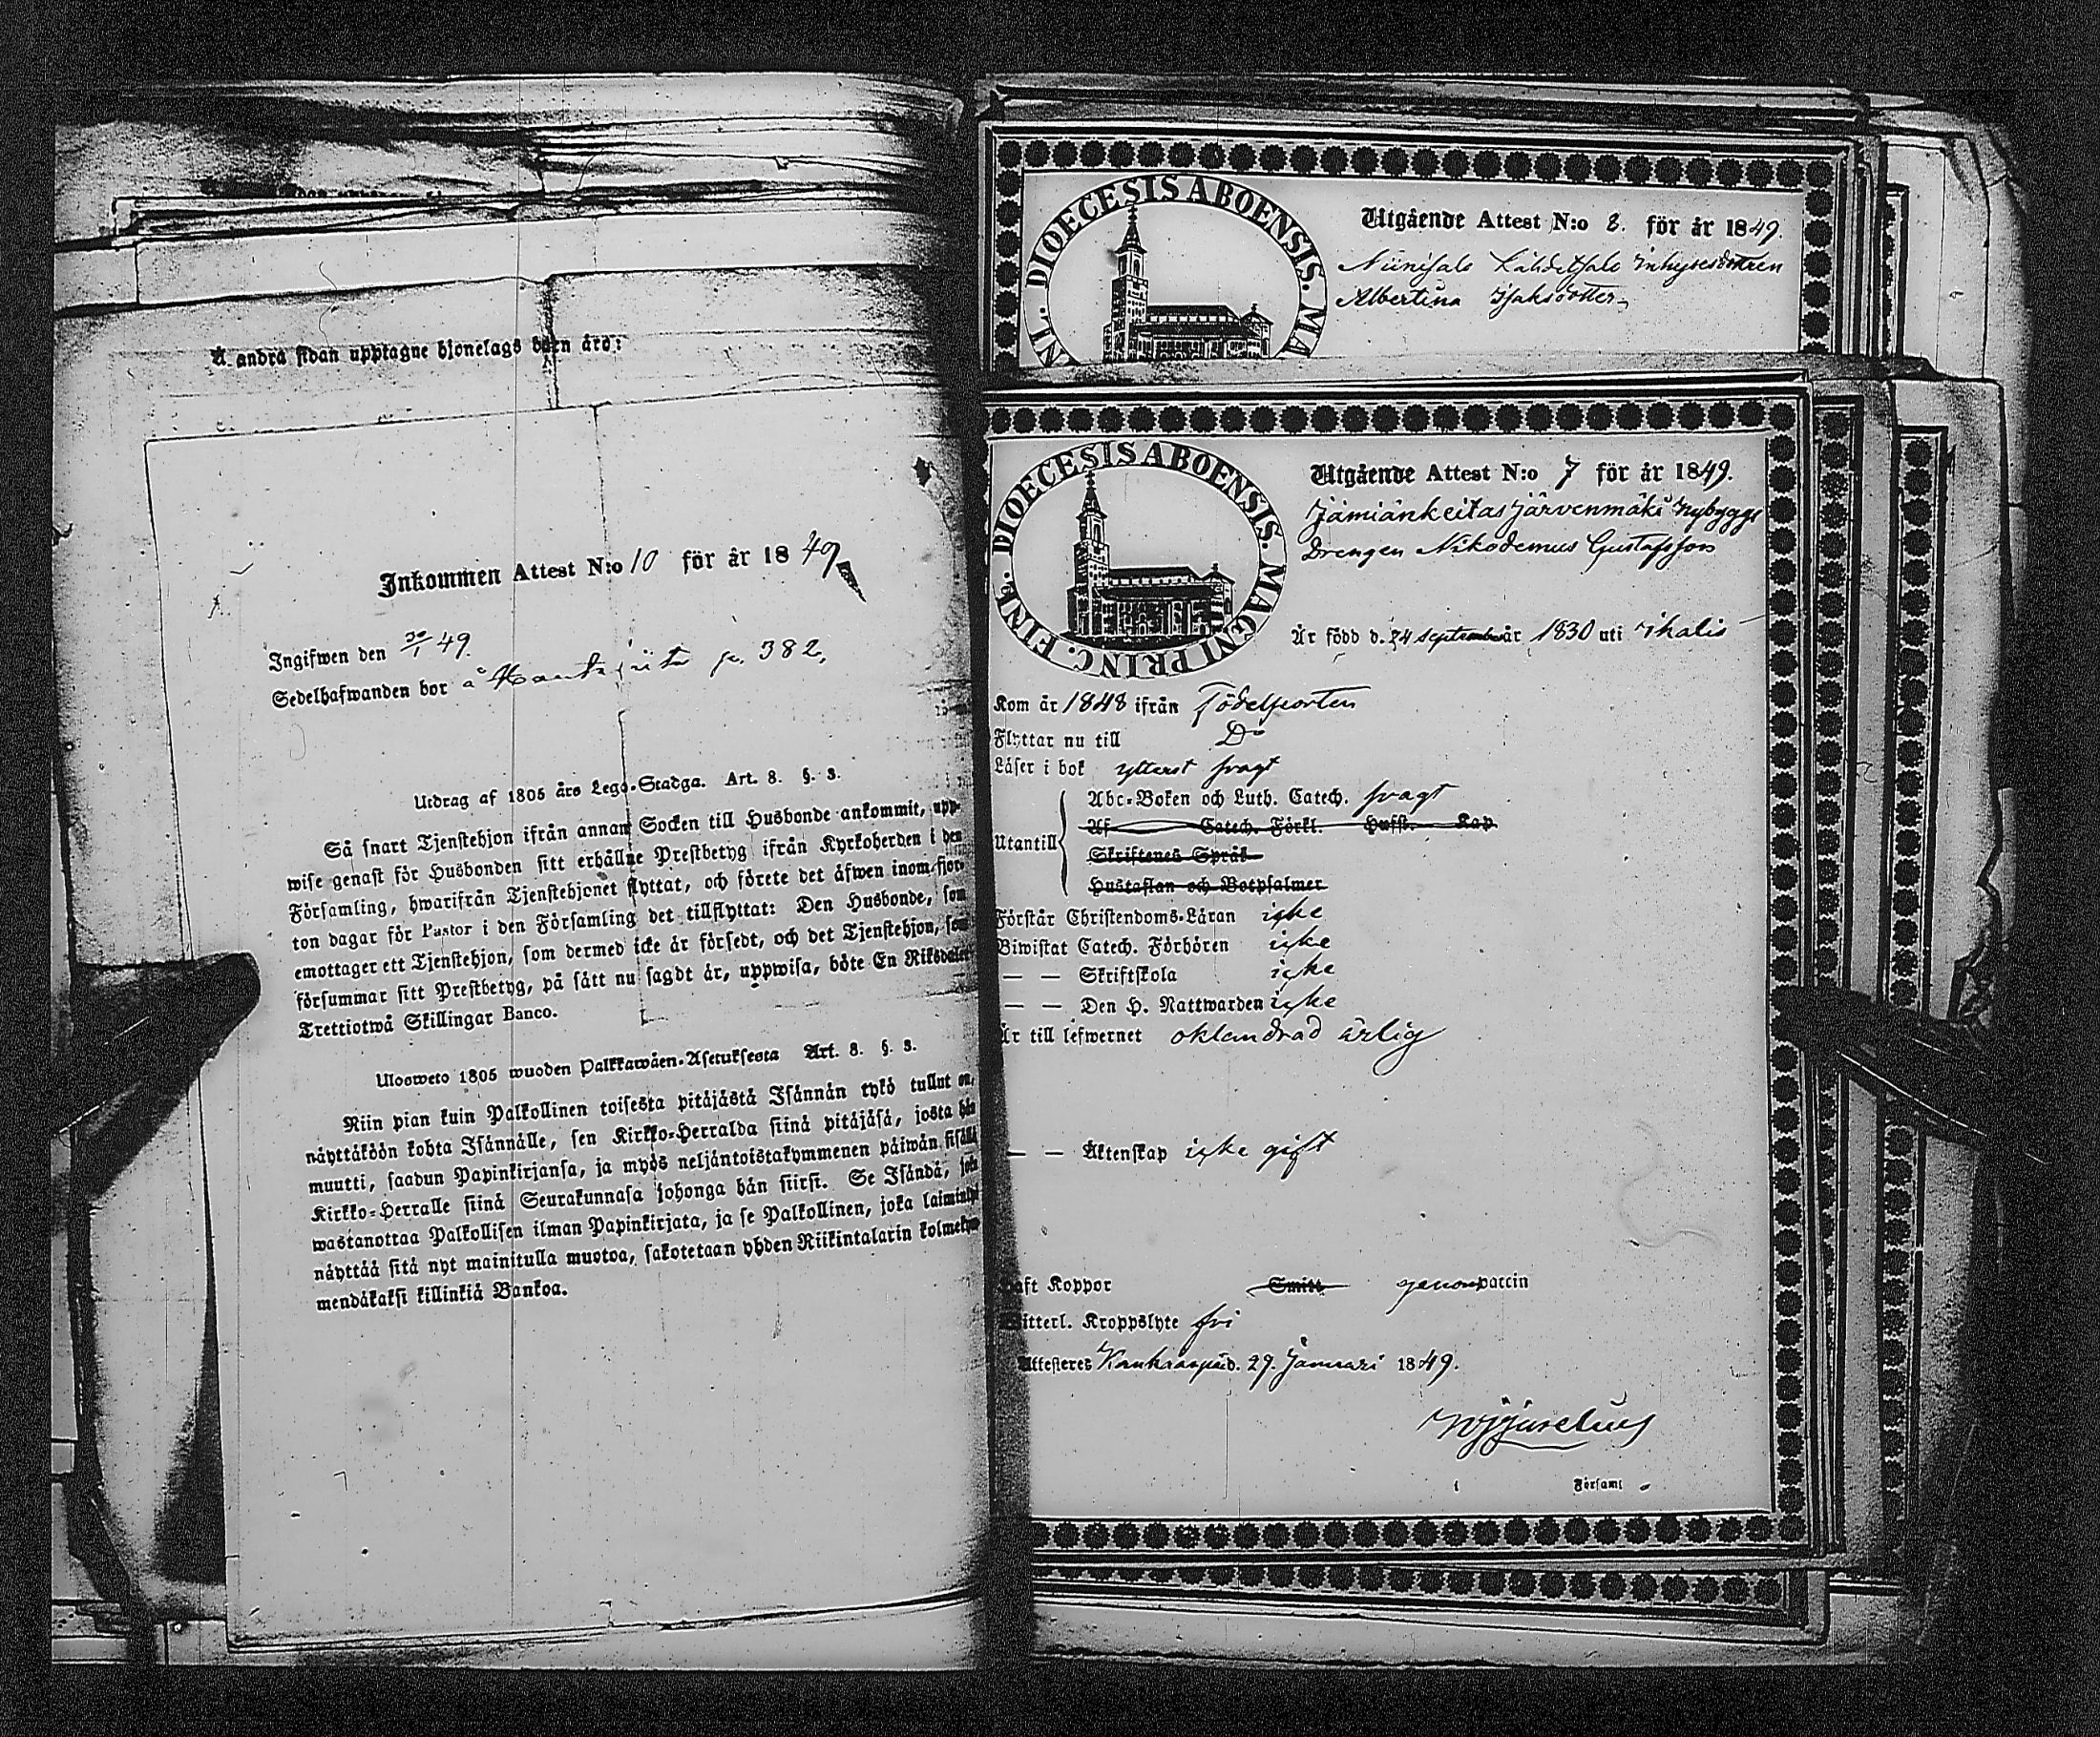 Å andra sidan upptagne hjonelags barn äro:
Inkommen Attest N:o 10 för år 1849
Ingifwen den 30/1 49.
Sedelhafwanden bor å p. 382.
Utdrag af 1805 års Lego-Stadga. Art. 8. §. 3.
Så snart Tjenstehjon ifrån annan Socken till Husbonde ankommit, upp-
wise genast för Husbonden sitt erhållne Prestbetyg ifrån Kyrkoherden i den
Församling, hwarifrån Tjenstehjonet flyttat, och förete det äfwen inom fjor-
ton dagar för Pastor i den Församling det tillflyttat: Den Husbonde, som
emottager ett Tjenstehjon, som dermed icke är försedt, och det Tjenstehjon, som
försummar sitt Prestbetyg, på sätt nu sagdt är, uppwisa, böte En Riksdaler
Trettiotwå Skillingar Banco.
Ulosweto 1805 wuoden Palkkawäen-Asetuksesta Art. 8. §. 3.
Niin pian kuin Palkollinen toisesta pitäjästä Isännän tykö tullut on,
näyttäköön kohta Isännälle, sen Kirkko-Herralda siinä pitäjäsä, josta hän
muutti, saadun Papinkirjansa, ja myös neljäntoistakymmenen päiwän sisällä
Kirkko-Herralle siinä Seurakunnasa johonga hän siirsi. Se Isändä, joka
wastanottaa Palkollisen ilman Papinkirjata, ja se Palkollinen, joka laiminlyö
näyttää sitä nyt mainitulla muotoa, sakotetaan yhden Riikintalarin kolmekym-
mendäkaksi killinkiä Bankoa.
DIOECESIS ABOENSIS. MA
NL.
Utgående Attest N:o 8. för år 1849.
Niinisalo Lähdetsalo Inhysesdottren
Albertina Isaksdotter
DIOECESIS ABOENSIS. MAGNI PRINC. FINL.
Utgående Attest N:o 7 för år 1849.
Jämiänkeitas Järvenmäki Nybygge
Drengen Nikodemus Gustafsson
Är född d. 24 september år 1830 uti Ikalis
Kom år 1848 ifrån Födelseorten
Flyttar nu till Do
Läser i bok ytterst svagt
Utantill
Abc-Boken och Luth. Catech. svagt
Af Catech. Förkl. Hufst. Kap
Skriftenes Språk
Hustaflan och Botpsalmer
Förstår Christendoms-Läran icke
Biwistat Catech. Förhören icke
— — Skriftskola icke
— — Den H. Nattwarden icke
Är till lefwernet oklandrad ärlig
— — Äktenskap icke gift
Haft Koppor Smitt genom vaccin
Witterl. Kroppslyte fri
Attesteres Kankaanpää d. 29. Januari 1849.
Församl